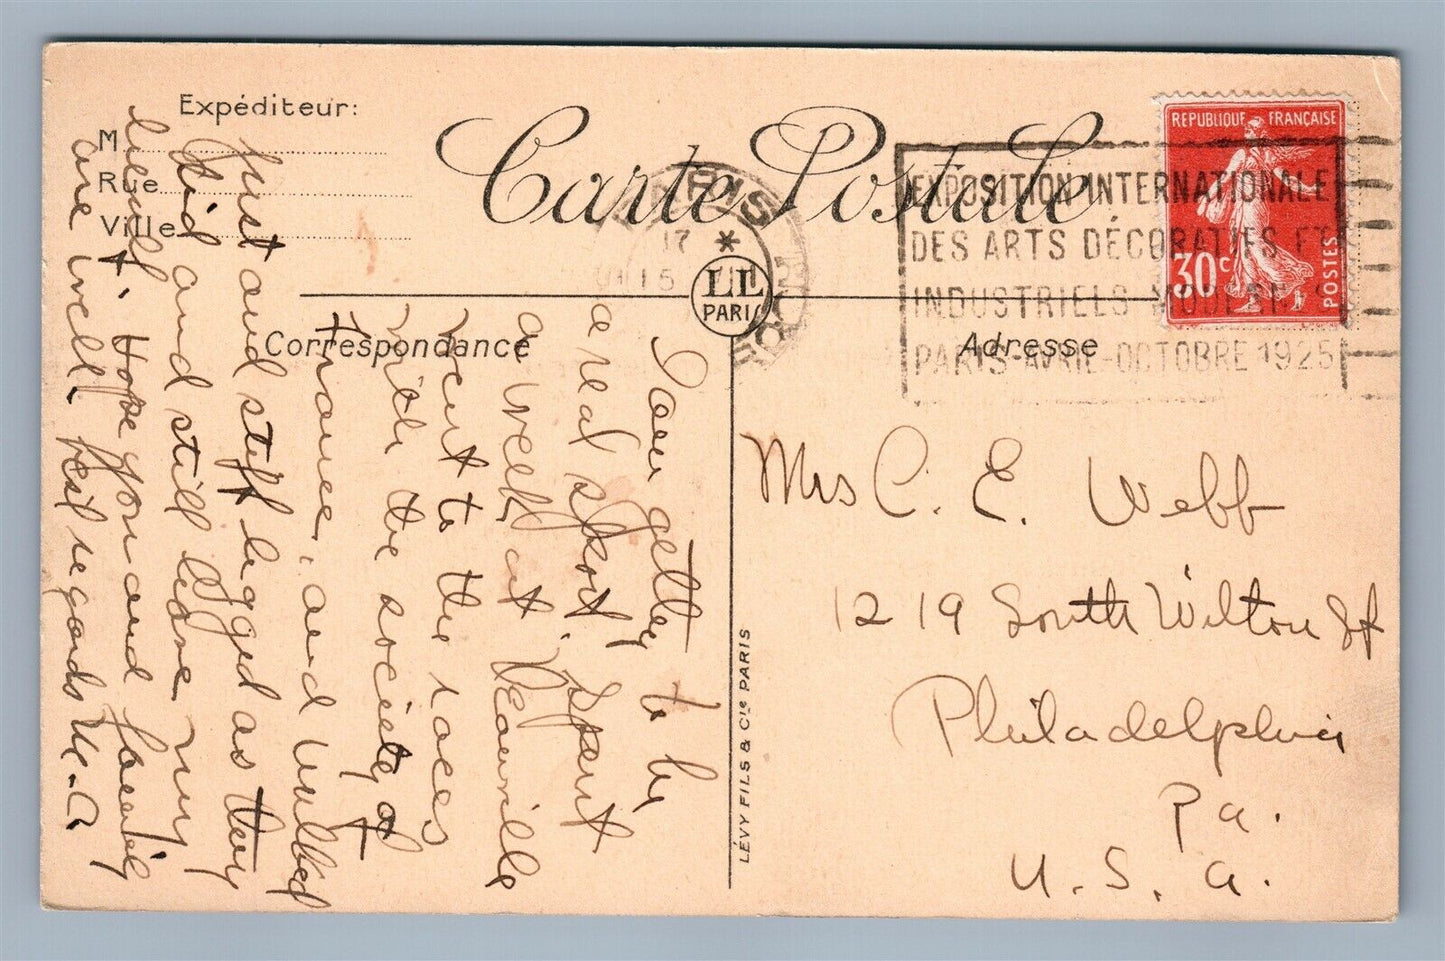 Expéditeur:
M
Rue
Ville
Carte Postale
PARIS
17 *
15
LL
PARIS
REPUBLIQUE FRANÇAISE
30c
POSTES
EXPOSITION INTERNATIONALE
DES ARTS DÉCORATIFS ET
INDUSTRIELS MODERNES
PARIS-AVRIL-OCTOBRE 1925
Correspondance
Adresse
LÉVY FILS & Cie PARIS
Mrs C. E. Webb
1219 South Wilton St
Philadelphia
Pa.
U. S. A.
Dear getting to be
a real sport. Spent
a week at Deauville
went to the races
with the society of
France, and walked
just and stiff legged as they
did and still have my
are well. Best regards
Hope you and family